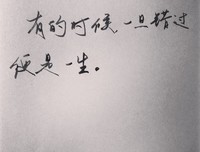 有的时候,一旦错过
便是一生。